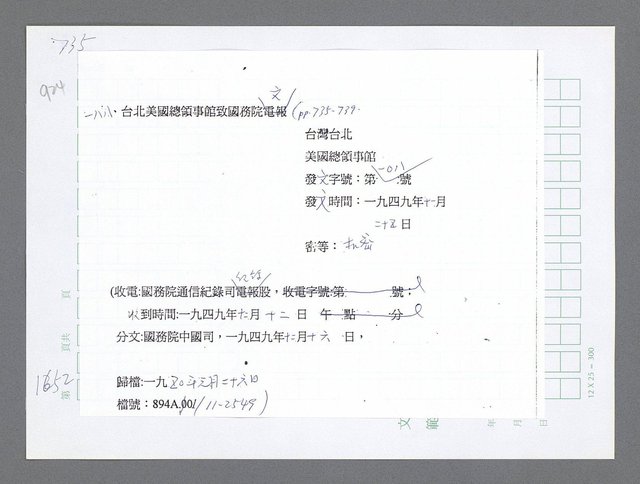 735
924
一八八、台北美國總領事館致國務院電報文(pp.735-739.
台灣台北
美國總領事館
發文字號：第一〇一一號
發文時間：一九四九年十一月
二十五日
密等：機密
(收電:國務院通信紀錄司電報股紀錄，收電字號:第 號：
收到時間:一九四九年十二月十二日 午 點 分
分文:國務院中國司，一九四九年十二月十六日，
歸檔:一九五〇年元月二十六日
檔號：894A.00/11-2549)
1652
第 頁共 頁
文 範
年 月 日
12 X 25 = 300